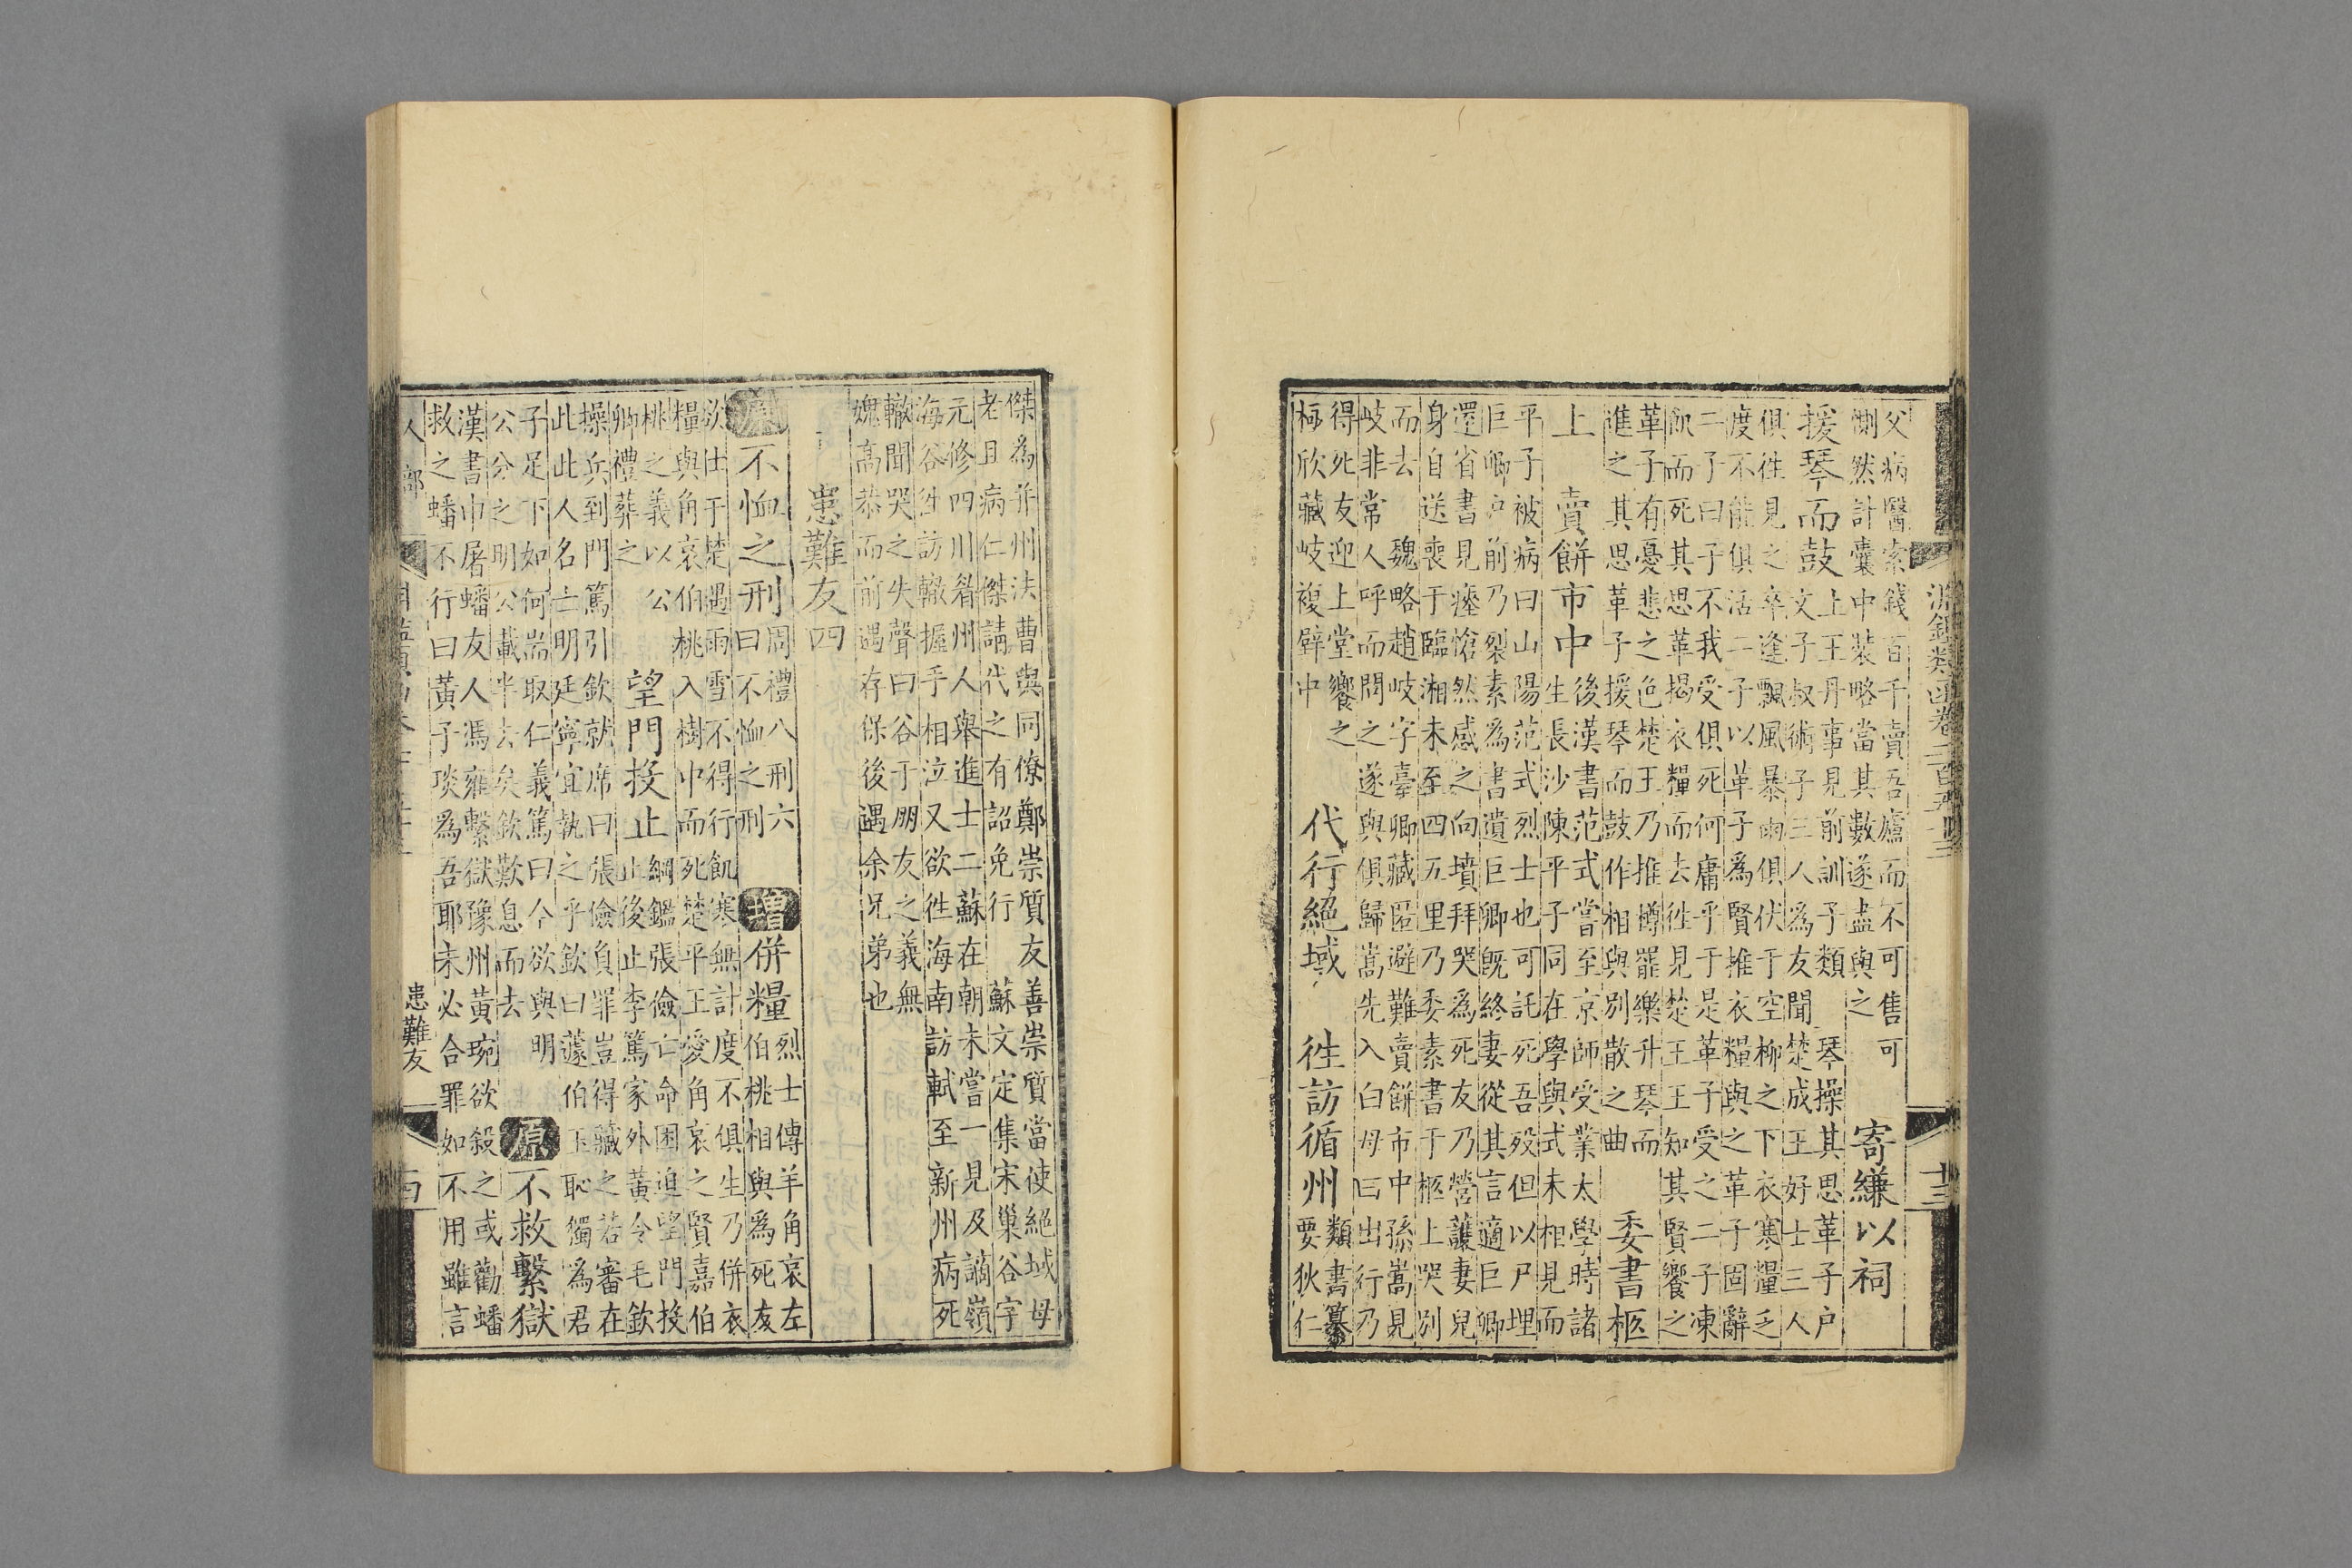 淵鑑類函卷二百五十三 十三
父病醫索錢百千賣吾廬而不可售可
惻然計囊中裝略當其數遂盡與之
寄縑以祠
援琴而鼓
上王丹事見前訓子類 琴操其思革子户
文子叔術子三人為友聞楚成王好士三人
俱徃見之卒逢飄風暴雨俱伏于空柳之下衣寒糧乏
度不能俱活二子以革子為賢推衣糧與之革子固辭
二子曰子不我受俱死何庸乎于是革子受之二子凍
飢而死其思革揭衣糧而去徃見楚王王知其賢饗之
革子有憂悲之色楚王乃推樽罷樂升琴而
進之其思革子援琴而鼓作相與別散之曲
委書柩
上 賣餅市中
後漢書范式嘗至京師受業太學時諸
生長沙陳平子同在學與式未相見而
平子被病曰山陽范式烈士也可託死吾殁但以尸埋
巨卿户前乃裂素為書遺巨卿既終妻從其言適巨卿
還省書見瘞愴然感之向墳拜哭為死友乃營護妻兒
身自送喪于臨湘未至四五里乃委素書于柩上哭別
而去 魏略趙岐字臺卿藏匿避難賣餅市中孫嵩見
岐非常人呼而問之遂與俱歸嵩先入白母曰出行乃
得死友迎上堂饗之
極欣藏岐複壁中
代行絕域 徃訪循州
類書纂
要狄仁
傑為并州法曹與同僚鄭崇質友善崇質當使絕域母
老且病仁傑請代之有詔免行 蘇文定集宋巢谷字
元修四川眉州人舉進士二蘇在朝未嘗一見及謫嶺
海谷徃訪轍握手相泣又欲徃海南訪軾至新州病死
轍聞哭之失聲曰谷于朋友之義無
媿高恭而前遇存保後遇余兄弟也
患難友四
原 不恤之刑
周禮八刑六
曰不恤之刑
增 併糧
烈士傳羊角哀左
伯桃相與為死友
欲士于楚遇雨雪不得行飢寒無計度不俱生乃併衣
糧與角哀伯桃入樹中而死楚平王愛角哀之賢嘉伯
桃之義以公
卿禮葬之
望門投止
綱鑑張儉亡命困迫望門投
止後止李篤家外黃令毛欽
操兵到門篤引欽就席曰張儉負罪豈得藏之若審在
此此人名士明廷寧宜執之乎欽曰蘧伯玉恥獨為君
子足下如何耑取仁義篤曰今欲與明
公分之明公載半去矣欽歎息而去
原 不救繫獄
漢書巾屠蟠友人馮雍繫獄豫州黃琬欲殺之或勸蟠
救之蟠不行曰黃子琰為吾耶未必合罪如不用雖言
人部 患難友